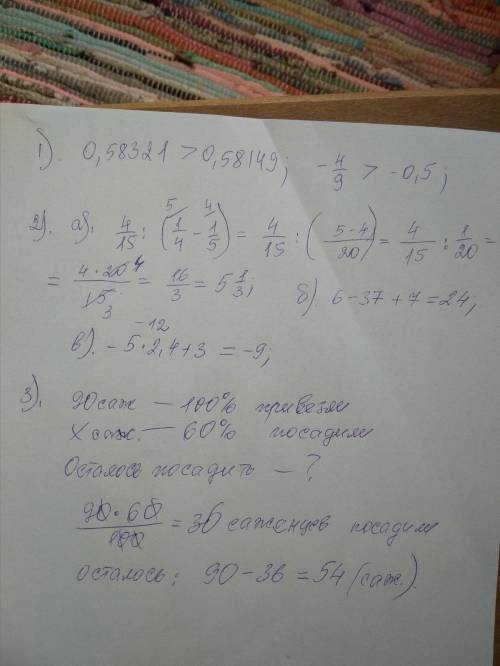 1). 0,58321 > 0,58149; -4/9 > -0,5;
2). а). 4/15 : (1/4 - 1/5) = 4/15 : (5-4/20) = 4/15 : 1/20 =
= 4·20/15 = 16/3 = 5 1/3; б). 6-37+7=24,
в). -5·2,4+3 = -9;
3). 90 саж — 100% привезли
Х саж. — 60% посадили
Осталось посадить — ?
90·60/100 = 36 саженцев посадили
осталось: 90-36 = 54 (саж.).